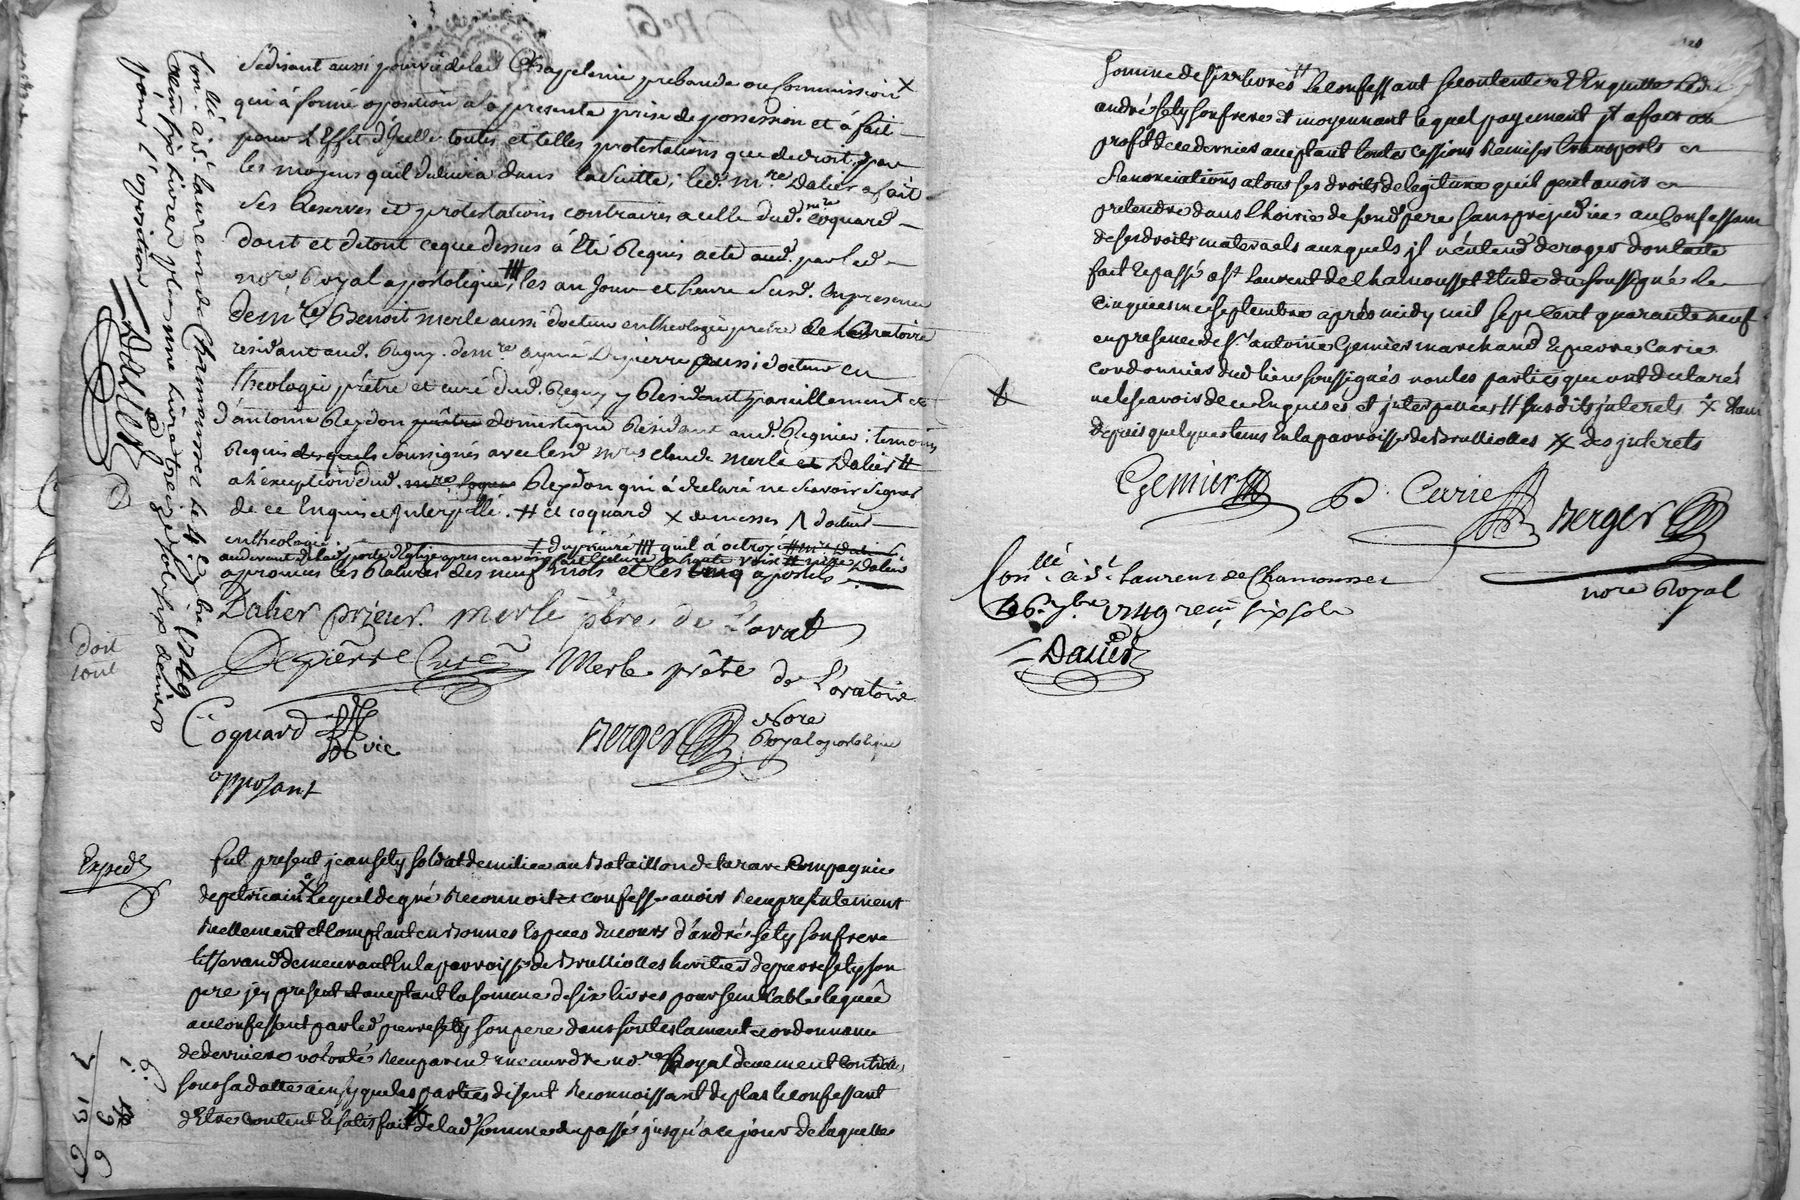 Se disant aussi pourvu de lad. Chapelenie prebande ou Commission X
qui à formé oposition a la presente prise de possession et à fait
pour l'Effet d'Icelle toutes et telles protestations que de droit, par
les moyens quil deduira dans la suitte; led. mre Dalier a fait
ses Reserves et protestations contraires a celle dud. mre Coquard
dont et de tout ce que dessus à été Requis acte aud. par led.
nore Royal apostolique, les an Jour et heure Susd. En presence
de mre Benoit merle aussi docteur en theologie pretre de L'oratoire
residant aud. Regny. de mre aymé Depierre aussi docteur en
theologie prêtre et curé dud. Regny y Residant pareillement et
d'antoine Reydon domestique Résidant aud. Regnier: temoins
Requis soussignés avec lesd. mrs Claude merle et Dalier #
a l'exception dud. Reydon qui à declaré ne Scavoir Signer
de ce Enquis et Interpellé. # et coquard X de messes Λ docteur
en theologie. quil à octroyé
audevant de lad. porte d'Eglise apres en avoir fait lecture
aprouvés les Ratures des neuf mots et les apostils
Dalier prieur. Merle pbre de L'orat
Depierre Curé Merle prêtre de L'oratoire
Coquard vic
opposant
Berger Nore
Royal apostolique
Con. llé a St. laurent de Chamousset le 4e 7bre 1749
pour l'oposition
Dallier
doit
tout
Exped
fut present jean sety soldat de milice au Bataillon de tarare Compagnie
de petricain X Lequel de gré Reconnoit et confesse avoir Recu presentement
Reellement et Comptant en Bonnes Especes du cours d'andré sety son frere
tisserand demeurant En la parroisse de Brulliolles heritier de pierre sety son
pere jcy present et aceptant la somme de six livres pour semblable leguée
au confessant par led. pierre sety son pere dans son testament et ordonnance
de derniere volonté Recu par nore Royal deuement Controllé
sous sa datte ainsy que les parties disent Reconnoissant de plus le confessant
d'Etre Content et satisfait de lad. somme du passé jusqu'a ce jour de laquelle
somme de six livres # le confessant se contente et Enquitte led.
andré sety son frere et moyennant lequel payement jl a fait au
profit de ce dernier aceptant toutes cessions Remises transports et
Renonciations a tous ses droits de legitime quil peut avoir et
pretendre dans l'hoirie de sond. pere sans prejudice au Confessant
de ses droits maternels auxquels jl n'entend deroger dont acte
fait Et passé a St laurent de Chamousset Etude du soussigné le
cinquiesme septembre après midy mil sept cent quarante neuf
en presence de Sr antoine Gemier marchand Et pierre Carie
cordonnier dud. lieu soussignés non les parties qui ont declaré
ne le scavoir de ce Enquises et jnterpellées # susdits jnterets X
depuis quelques tems En la parroisse de Brulliolles XX des jnterets
Gemier P. Carie Berger
nore Royal
Con. llé a St. Laurent de Chamousset
le 6. 7bre 1749 recu six sols
Dalier